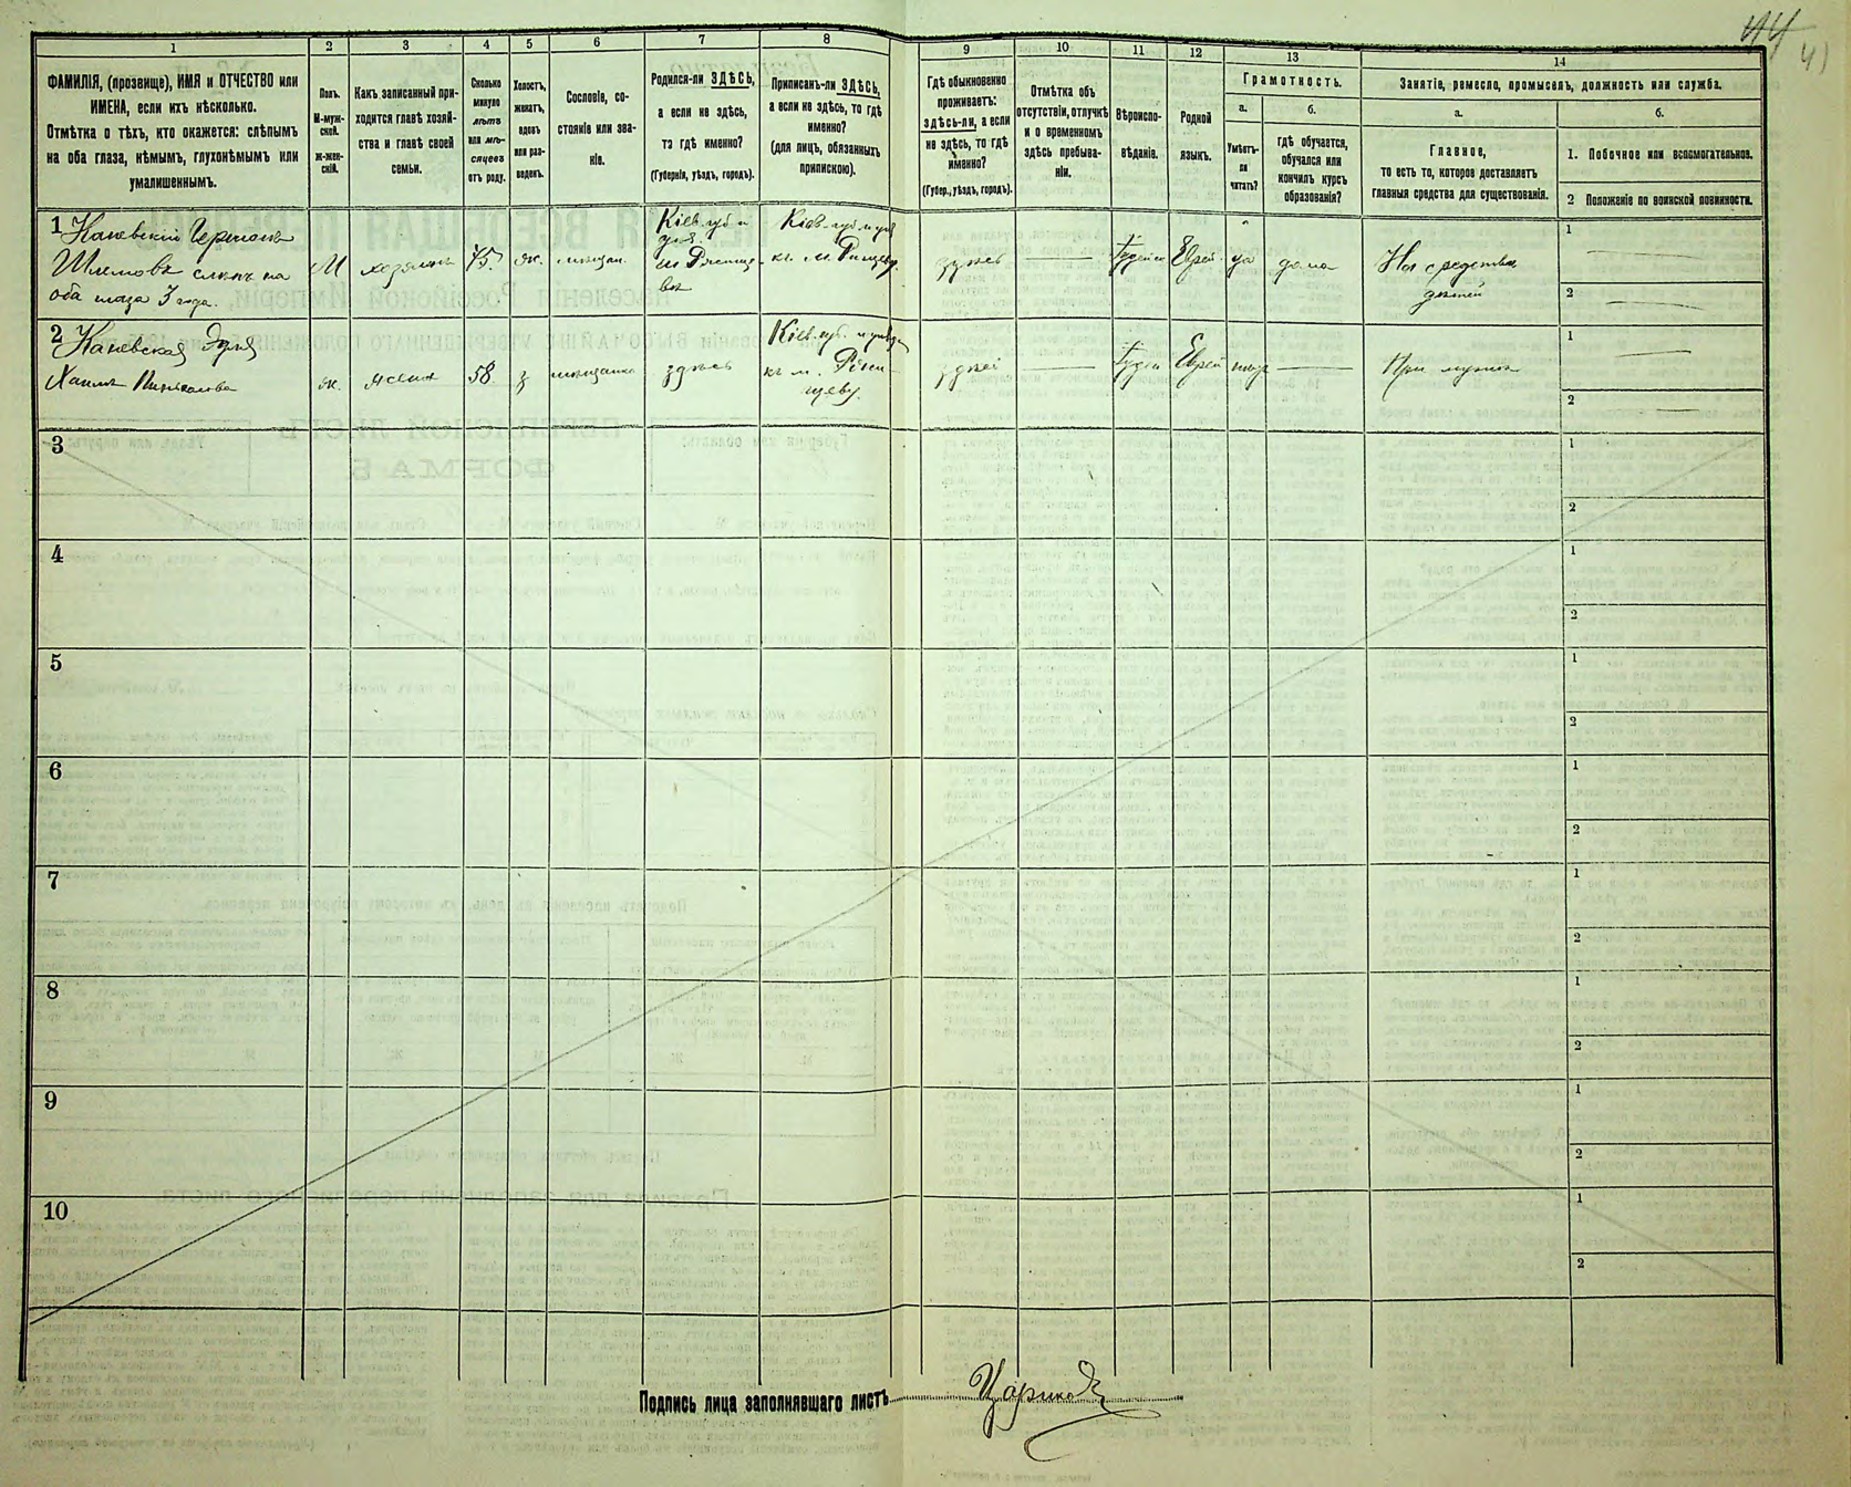 44
41
1
2
3
4
5
6
7
8
9
10
11
12
13
14
ФАМИЛІЯ, (прозвище), ИМЯ и ОТЧЕСТВО или
ИМЕНА, если ихъ нѣсколько.
Отмѣтка о тѣхъ, кто окажется: слѣпымъ
на оба глаза, нѣмымъ, глухонѣмымъ или
умалишеннымъ.
Полъ.
М-муж-
ской.
ж-жен-
скій.
Какъ записанный при-
ходится главѣ хозяй-
ства и главѣ своей
семьи.
Сколько
минуло
лѣтъ
или мѣ-
сяцевъ
отъ роду.
Холостъ,
женатъ,
вдовъ
или раз-
веденъ.
Сословіе, со-
стояніе или зва-
ніе.
Родился-ли ЗДѢСЬ,
а если не здѣсь,
то гдѣ именно?
(Губернія, уѣздъ, городъ).
Приписанъ-ли ЗДѢСЬ,
а если не здѣсь, то гдѣ
именно?
(для лицъ, обязанныхъ
припискою).
Гдѣ обыкновенно
проживаетъ:
здѣсь-ли, а если
не здѣсь, то гдѣ
именно?
(Губер., уѣздъ, городъ).
Отмѣтка объ
отсутствіи, отлучкѣ
и о временномъ
здѣсь пребыва-
ніи.
Вѣроиспо-
вѣданіе.
Родной
языкъ.
Грамотность.
а.
б.
Умѣетъ-
ли
читать?
гдѣ обучается,
обучался или
кончилъ курсъ
образованія?
Занятіе, ремесло, промыселъ, должность или служба.
а.
б.
Главное,
то есть то, которое доставляетъ
главныя средства для существованія.
1. Побочное или вспомогательное.
2 Положеніе по воинской повинности.
1 Каневскій Гершонъ
Шлемовъ слѣпъ на
оба глаза 3 года.
М
хозяинъ
75
ж.
мѣщан.
Кіев. губ и
уѣз.
м Ржище-
въ
Кіев. губ и уѣз
къ м. Ржищеву.
здѣсь
Іудейс
Еврей
да
дома
На средства
дѣтей
1
2
2 Каневская Эдня
Хаимъ
ж.
жена
58
з
мѣщанка
здѣсь
Кіев. губ. и уѣзда
къ м. Ржи-
щеву.
здѣсь
Іудей
Еврей
При мужѣ
1
2
3
1
2
4
1
2
5
1
2
6
1
2
7
1
2
8
1
2
9
1
2
10
1
2
Подпись лица заполнявшаго листъ